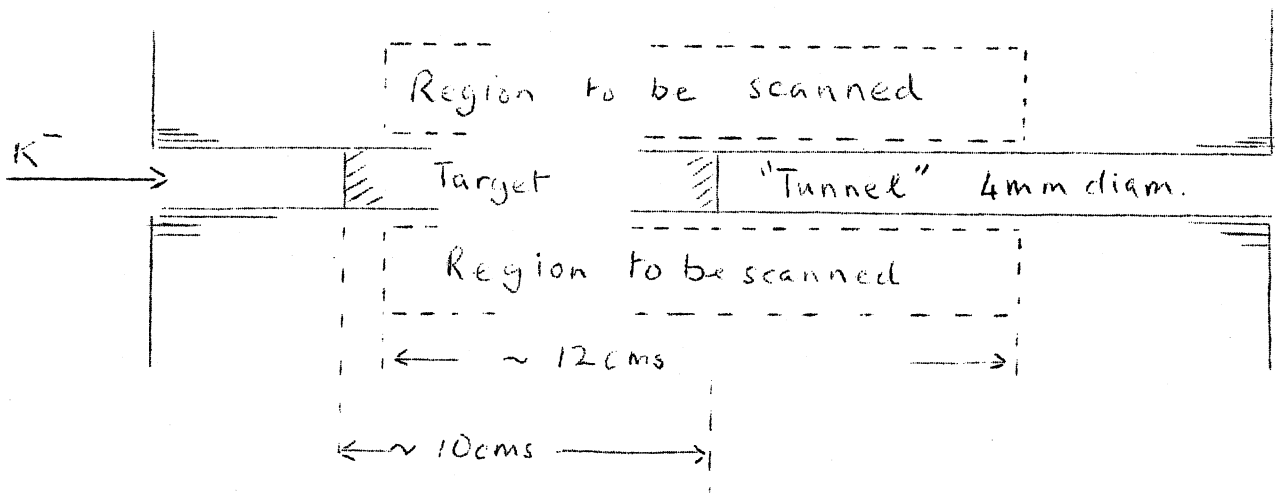 Region to be scanned
K⁻
Target "Tunnel" 4mm diam.
Region to be scanned
~ 12cms
~ 10cms